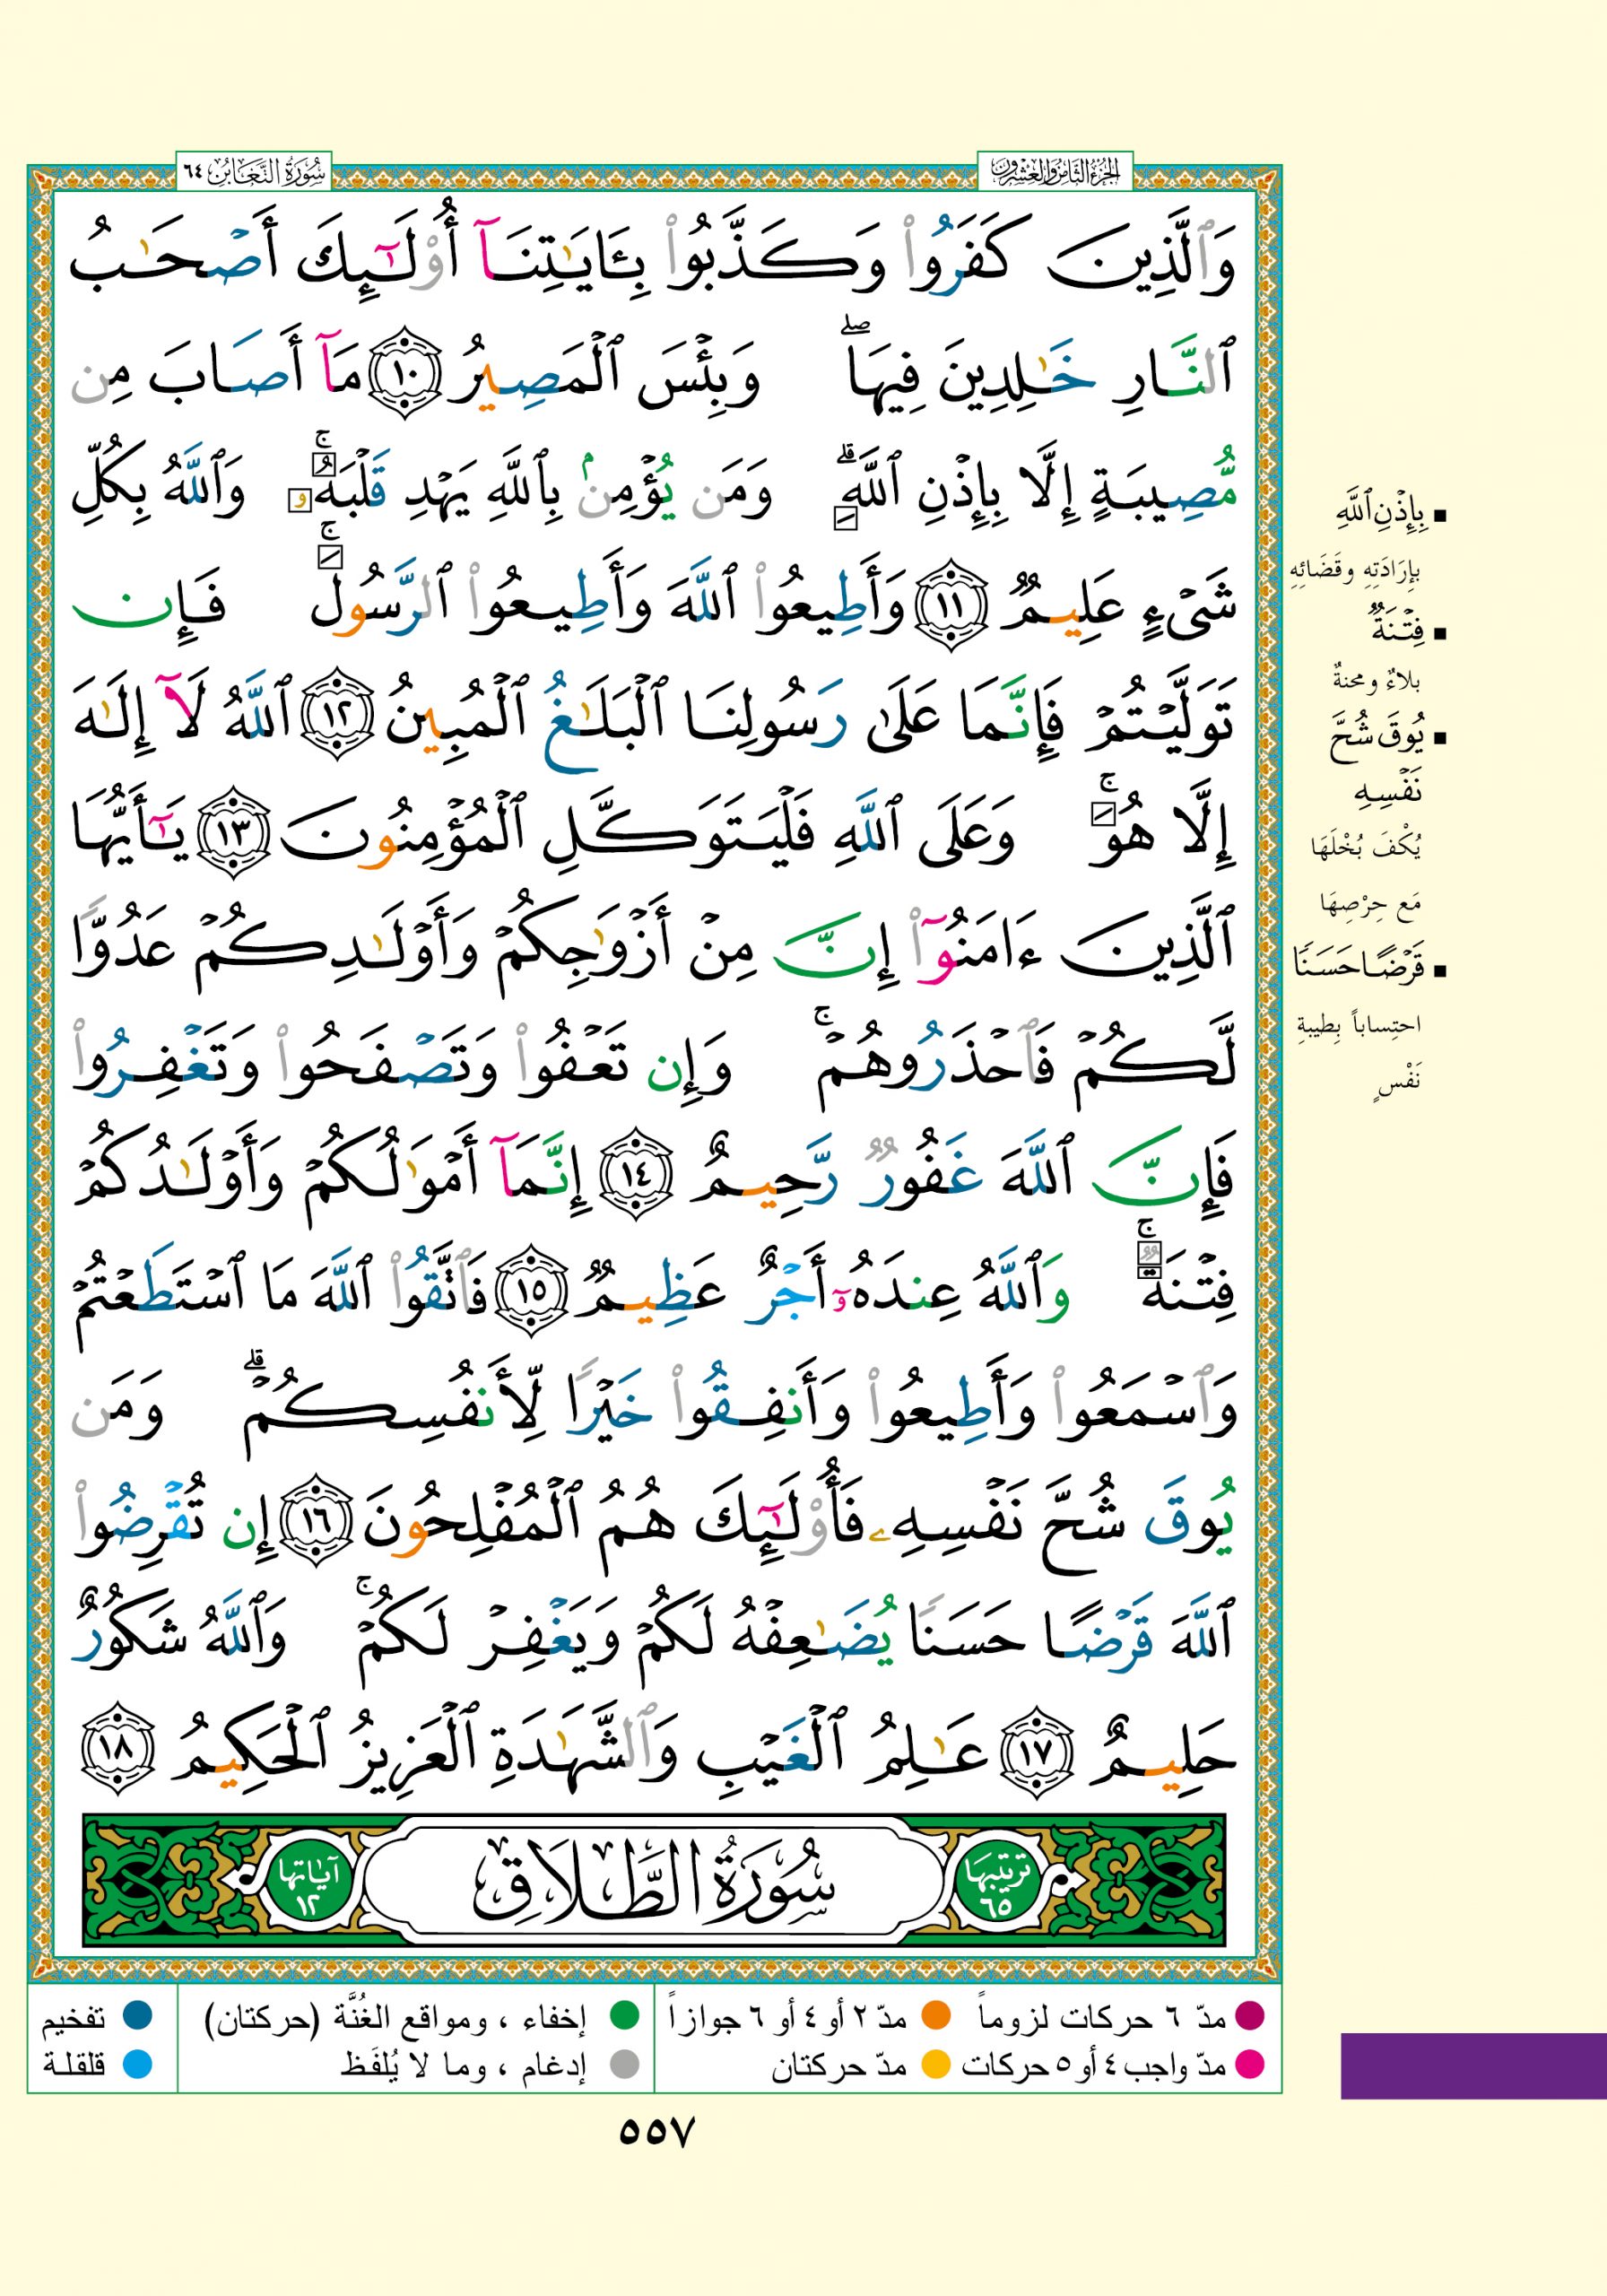 الجزء الثامن والعشرون
سورة التغابن ٦٤
وَٱلَّذِينَ كَفَرُوا۟ وَكَذَّبُوا۟ بِـَٔايَـٰتِنَآ أُو۟لَـٰٓئِكَ أَصْحَـٰبُ
ٱلنَّارِ خَـٰلِدِينَ فِيهَا ۖ وَبِئْسَ ٱلْمَصِيرُ ١٠ مَآ أَصَابَ مِن
مُّصِيبَةٍ إِلَّا بِإِذْنِ ٱللَّهِ ۗ وَمَن يُؤْمِنۢ بِٱللَّهِ يَهْدِ قَلْبَهُۥ ۚ وَٱللَّهُ بِكُلِّ
شَىْءٍ عَلِيمٌ ١١ وَأَطِيعُوا۟ ٱللَّهَ وَأَطِيعُوا۟ ٱلرَّسُولَ ۚ فَإِن
تَوَلَّيْتُمْ فَإِنَّمَا عَلَىٰ رَسُولِنَا ٱلْبَلَـٰغُ ٱلْمُبِينُ ١٢ ٱللَّهُ لَآ إِلَـٰهَ
إِلَّا هُوَ ۚ وَعَلَى ٱللَّهِ فَلْيَتَوَكَّلِ ٱلْمُؤْمِنُونَ ١٣ يَـٰٓأَيُّهَا
ٱلَّذِينَ ءَامَنُوٓا۟ إِنَّ مِنْ أَزْوَٰجِكُمْ وَأَوْلَـٰدِكُمْ عَدُوًّا
لَّكُمْ فَٱحْذَرُوهُمْ ۚ وَإِن تَعْفُوا۟ وَتَصْفَحُوا۟ وَتَغْفِرُوا۟
فَإِنَّ ٱللَّهَ غَفُورٌ رَّحِيمٌ ١٤ إِنَّمَآ أَمْوَٰلُكُمْ وَأَوْلَـٰدُكُمْ
فِتْنَةٌ ۚ وَٱللَّهُ عِندَهُۥٓ أَجْرٌ عَظِيمٌ ١٥ فَٱتَّقُوا۟ ٱللَّهَ مَا ٱسْتَطَعْتُمْ
وَٱسْمَعُوا۟ وَأَطِيعُوا۟ وَأَنفِقُوا۟ خَيْرًا لِّأَنفُسِكُمْ ۗ وَمَن
يُوقَ شُحَّ نَفْسِهِۦ فَأُو۟لَـٰٓئِكَ هُمُ ٱلْمُفْلِحُونَ ١٦ إِن تُقْرِضُوا۟
ٱللَّهَ قَرْضًا حَسَنًا يُضَـٰعِفْهُ لَكُمْ وَيَغْفِرْ لَكُمْ ۚ وَٱللَّهُ شَكُورٌ
حَلِيمٌ ١٧ عَـٰلِمُ ٱلْغَيْبِ وَٱلشَّهَـٰدَةِ ٱلْعَزِيزُ ٱلْحَكِيمُ ١٨
ترتيبها ٦٥
سُورَةُ الطَّلَاقِ
آياتها ١٢
▪ بِإِذْنِ ٱللَّهِ
بِإِرَادَتِهِ وقَضَائِهِ
▪ فِتْنَةٌ
بلاءٌ ومحنةٌ
▪ يُوقَ شُحَّ
نَفْسِهِ
يُكْفَ بُخْلَهَا
مَع حِرْصِهَا
▪ قَرْضًا حَسَنًا
احتِساباً بِطيبةِ
نَفْسٍ
مدّ ٦ حركات لزوماً مدّ ٢ أو ٤ أو ٦ جوازاً إخفاء ، ومواقع الغُنَّة (حركتان) تفخيم
مدّ واجب ٤ أو ٥ حركات مدّ حركتان إدغام ، وما لا يُلفَظ قلقلة
٥٥٧